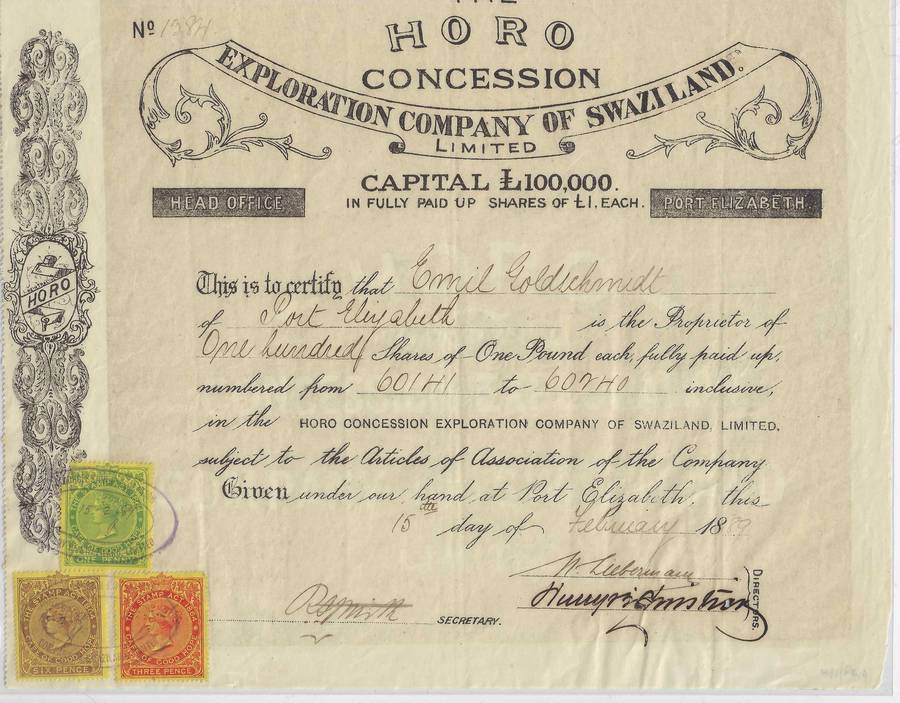 THE
Nº 1584
HORO
CONCESSION
EXPLORATION COMPANY OF SWAZILAND.
LIMITED
CAPITAL £100,000.
IN FULLY PAID UP SHARES OF £1. EACH.
HEAD OFFICE
PORT ELIZABETH.
This is to certify that Emil Goldschmidt
of Port Elizabeth is the Proprietor of
One hundred Shares of One Pound each, fully paid up,
numbered from 60141 to 60240 inclusive,
in the HORO CONCESSION EXPLORATION COMPANY OF SWAZILAND, LIMITED,
subject to the Articles of Association of the Company.
Given under our hand at Port Elizabeth, this
15th day of February 1889
W. Lieberman
DIRECTORS.
SECRETARY.
HORO
ONE PENNY
THE STAMP ACT 1864
CAPE OF GOOD HOPE
SIX PENCE
THE STAMP ACT 1864
CAPE OF GOOD HOPE
THREE PENCE